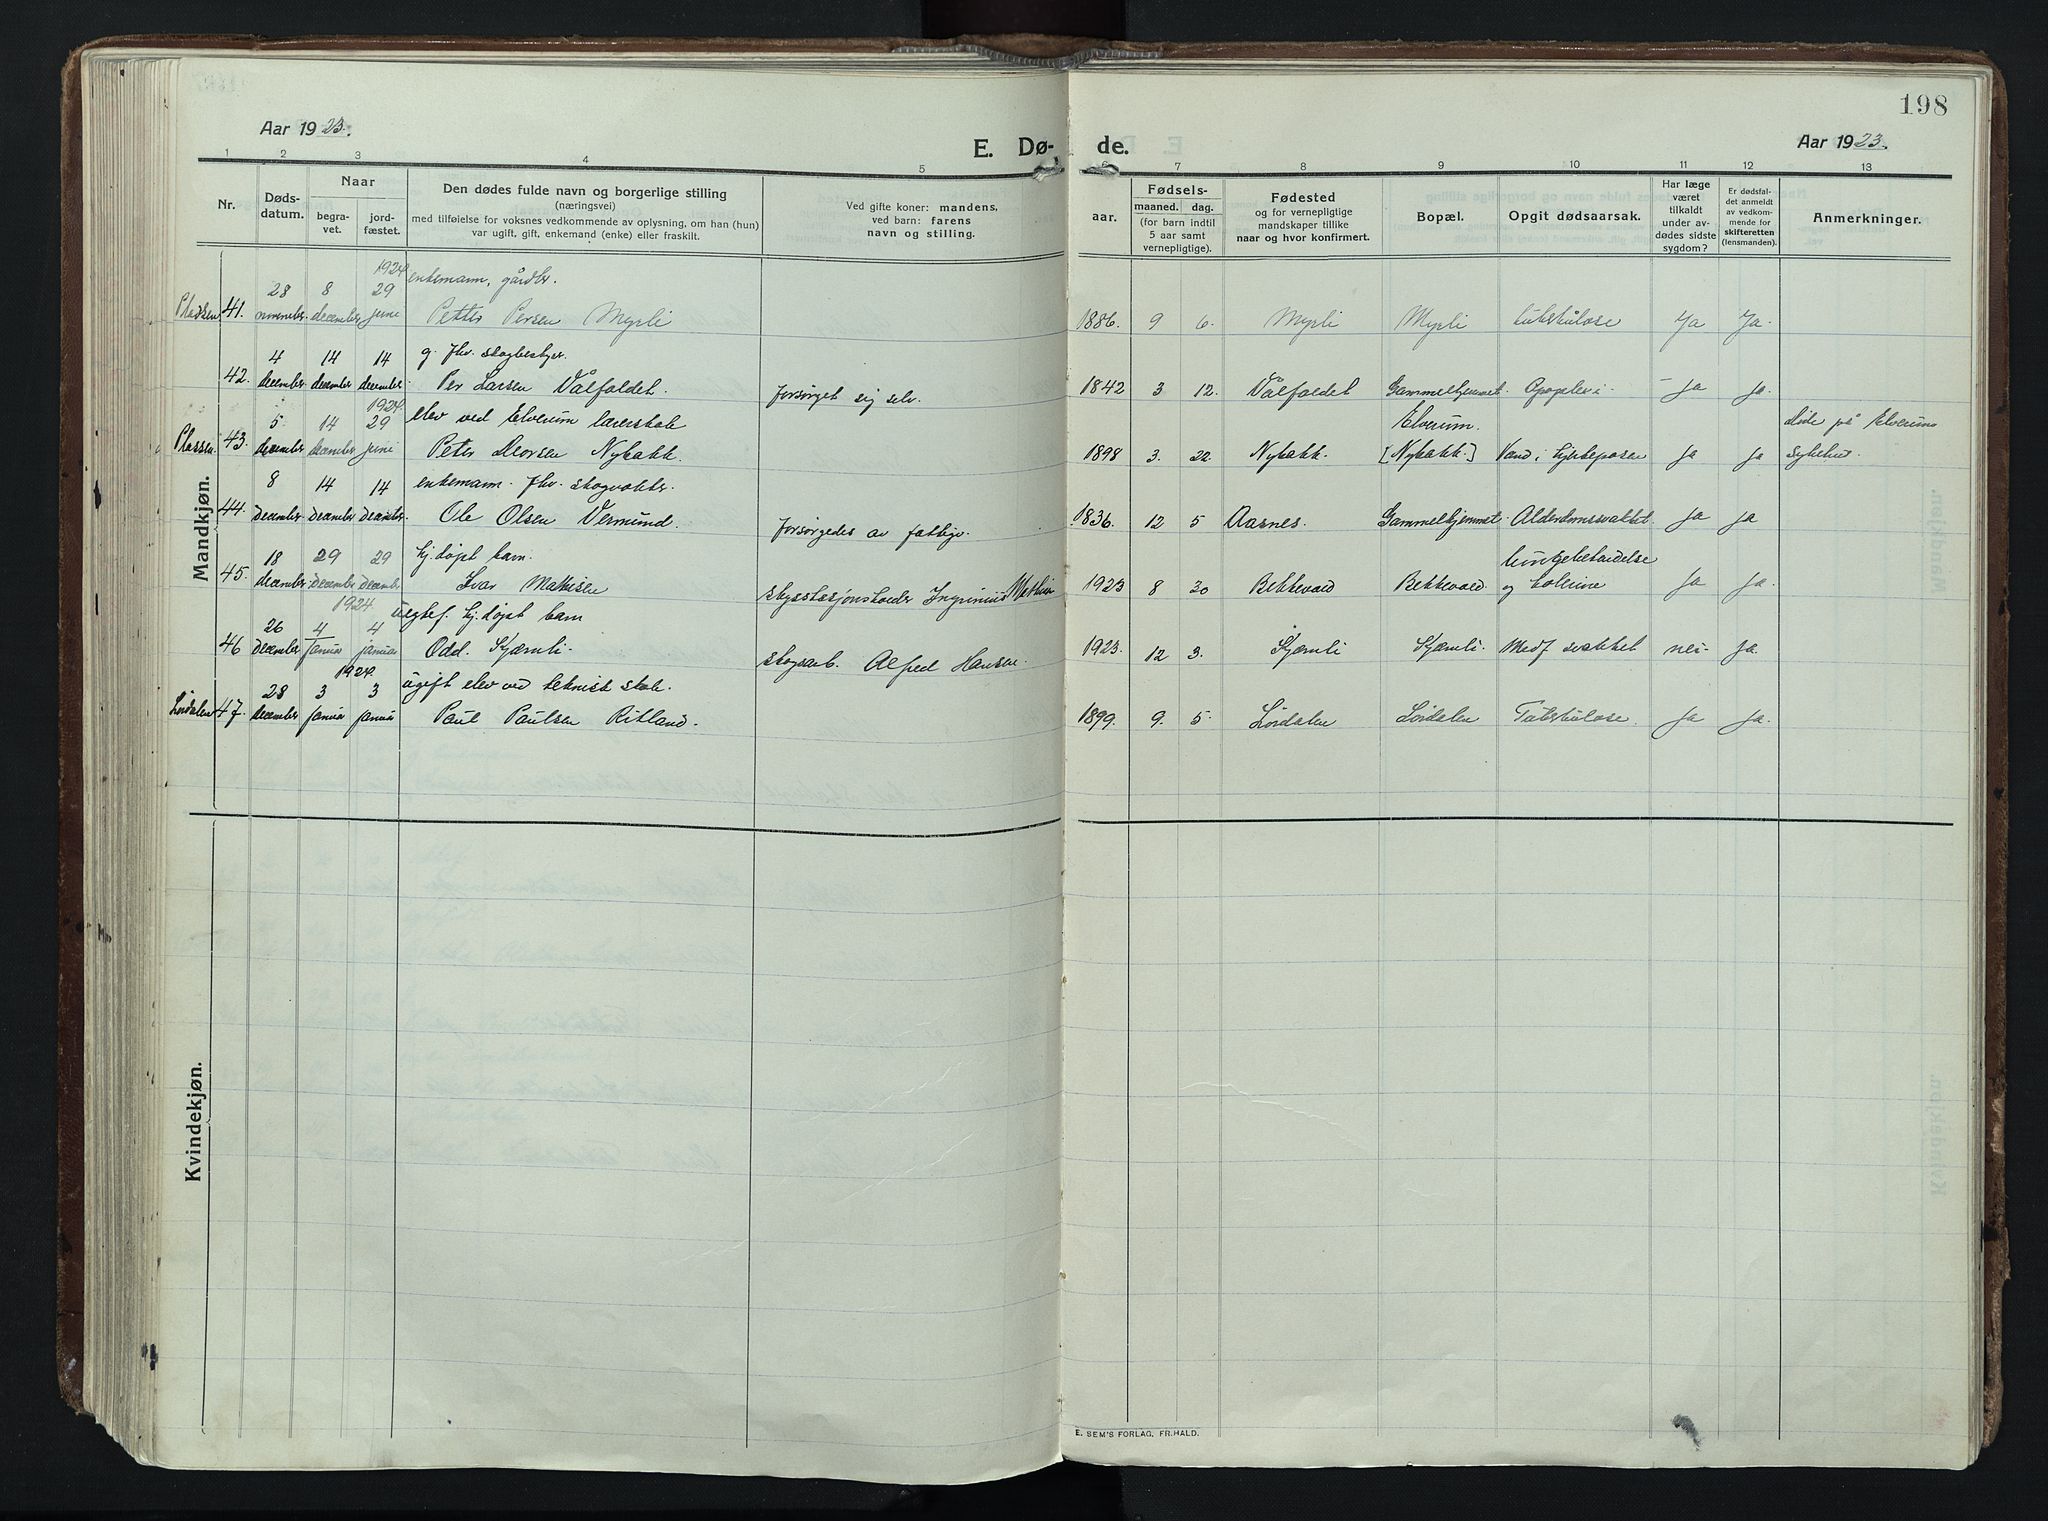 198
Aar 1923.
E. Dø-
de.
Aar 1923.
1 2 3 4 5 6 7 8 9 10 11 12 13
Nr.
Døds-
datum.
Naar
begra-
vet.
jord-
fæstet.
Den dødes fulde navn og borgerlige stilling
(næringsvei)
med tilføielse for voksnes vedkommende av oplysning, om han (hun)
var ugift, gift, enkemand (enke) eller fraskilt.
Ved gifte koner: mandens,
ved barn: farens
navn og stilling.
aar.
Fødsels-
maaned. dag.
(for barn indtil
5 aar samt
vernepligtige).
Fødested
og for vernepligtige
mandskaper tillike
naar og hvor konfirmert.
Bopæl.
Opgit dødsaarsak.
Har læge
været
tilkaldt
under av-
dødes sidste
sygdom?
Er dødsfal-
det anmeldt
av vedkom-
mende for
skifteretten
(lensmanden).
Anmerkninger.
Mandkjøn.
1924
28 8 29 enkemann, gårdbr.
41. november december juni Petter Persen Myrli 1886. 9 6. Myrli Myrli tuberkulose Ja Ja.
4 14 14 g. fhv. skogbestyr.
42. december december december Per Larsen Vålfaldet. forsørget sig selv. 1842 3 12. Vålfaldet Gammelhjemmet. Apoplexi - Ja Ja.
1924.
5 14 29 elev ved Elverum lærerskole Elverum. døde på Elverums
43. december december juni Peter Nybakk. 1898 3. 22. Nybakk. [Nybakk.] Vand i Ja Ja Sykehus.
8 14 14 enkemann. fhv. skogvokter.
44. december december december Ole Olsen Vermund. Forsørgedes av fattigv. 1836. 12 5 Aasnes. Gammelhjemmet. Alderdomssvakhet. Ja Ja
18 29 29 hj. døpt barn. Lungebetændelse
45. december december december Ivar Mathisen skysstasjonsholder Mathisen 1923 8 30 Bekkevold Bekkevold og kolerine Ja Ja.
1924 uegtef. hj. døpt barn
26 4 4
46 december januar januar Odd. Kjærnli. skogsarb. Alfred Hansen. 1923. 12 3. Kjærnli Kjærnli. Medf. svakhet nei- Ja.
1924. ugift elev ved teknisk skole.
28 3 3
Lørdalen 47. december januar januar Paul Paulsen Ritland. 1899. 9. 5. Lørdalen Lørdalen Tuberkulose. Ja Ja.
Kvindekjøn.
E. SEM'S FORLAG, FR.HALD.